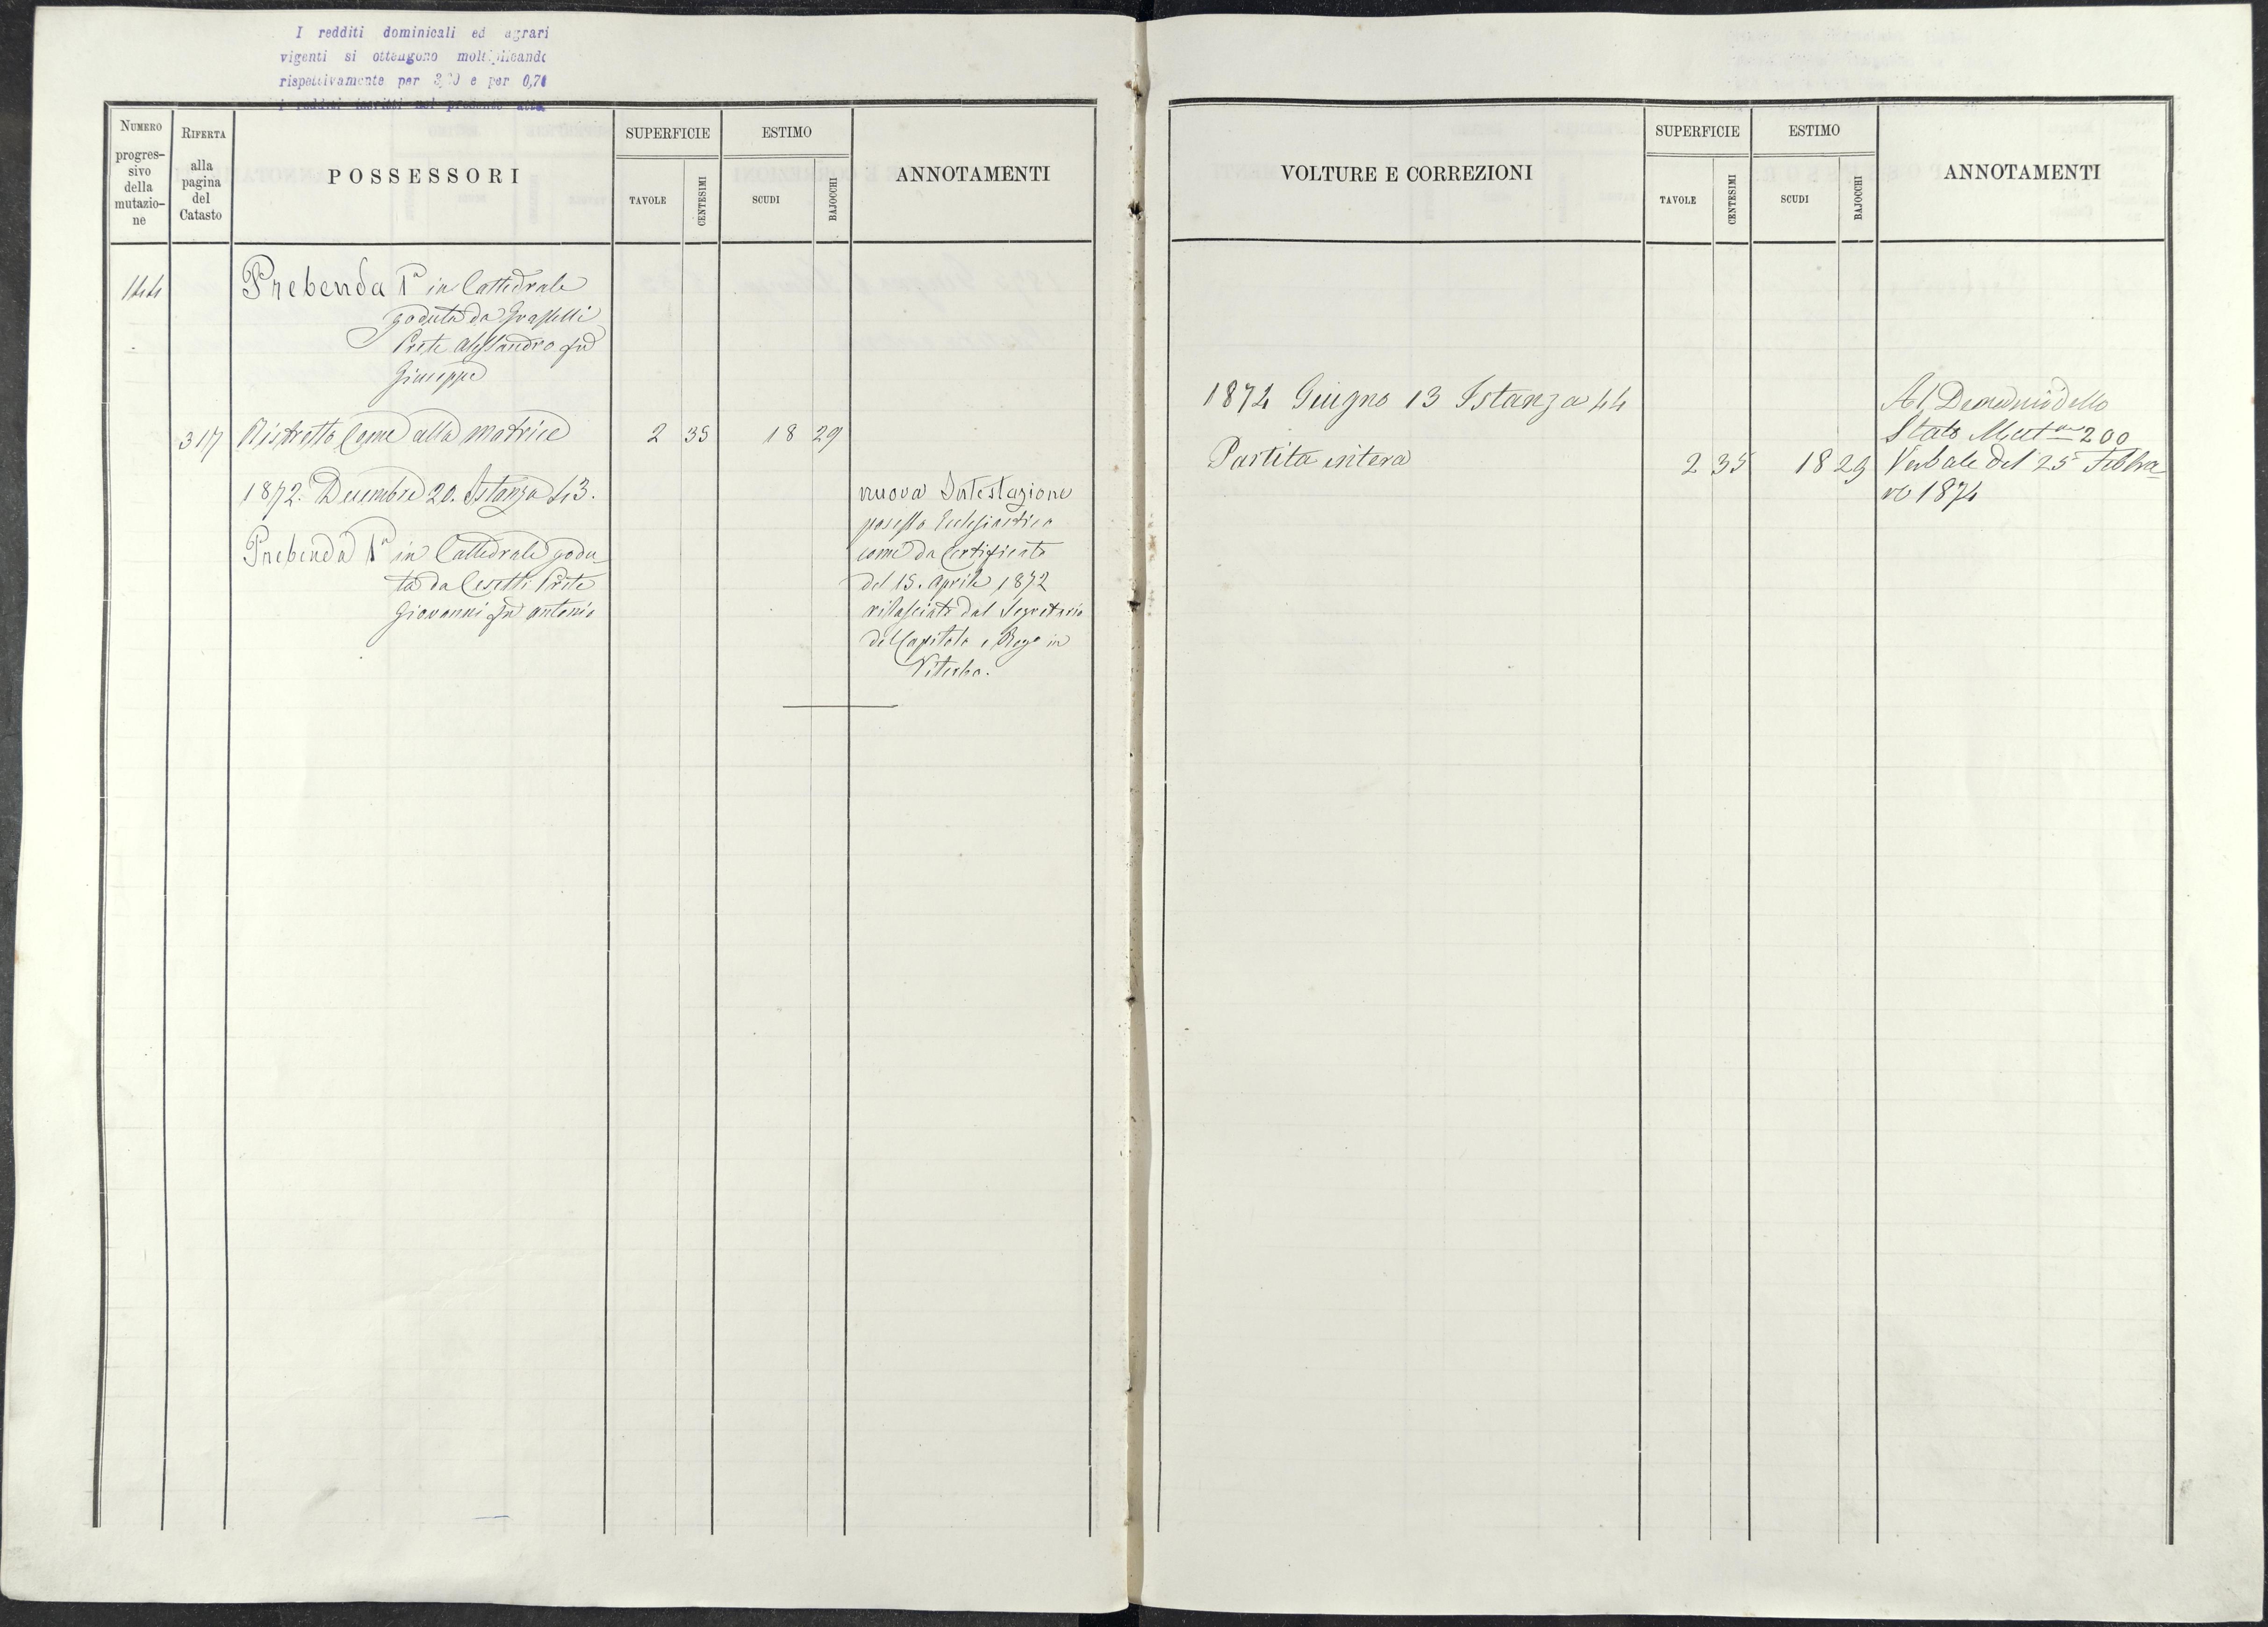 I redditi dominicali ed agrari
vigenti si ottengono moltiplicando
rispettivamente per e per 0,70
i redditi inscritti nel presente atto
NUMERO
progres-
sivo
della
mutazio-
ne
RIFERTA
alla
pagina
del
Catasto
POSSESSORI
SUPERFICIE
TAVOLE
CENTESIMI
ESTIMO
SCUDI
BAJOCCHI
ANNOTAMENTI
144
Prebenda 1a in Cattedrale
goduta da
Prete Alessandro fu
Giuseppe
317 Ristretto Come alla matrice 2 35 18 29
1872. Decembre 20. Istanza 43.
Prebenda 1a in Cattedrale godu-
ta da Cesetti Prete
Giovanni fu Antonio
nuova Intestazione
possesso Eclesiastico
come da Certificato
del 15. Aprile 1872
rilasciato dal Segretario
del Capitolo e Reg.o in
Viterbo.
VOLTURE E CORREZIONI
SUPERFICIE
TAVOLE
CENTESIMI
ESTIMO
SCUDI
BAJOCCHI
ANNOTAMENTI
1874 Giugno 13 Istanza 44
Partita intera 2 35 18 29
Al Demanio dello
Stato Mut.ne 200
Verbale del 25 Febbra-
ro 1874